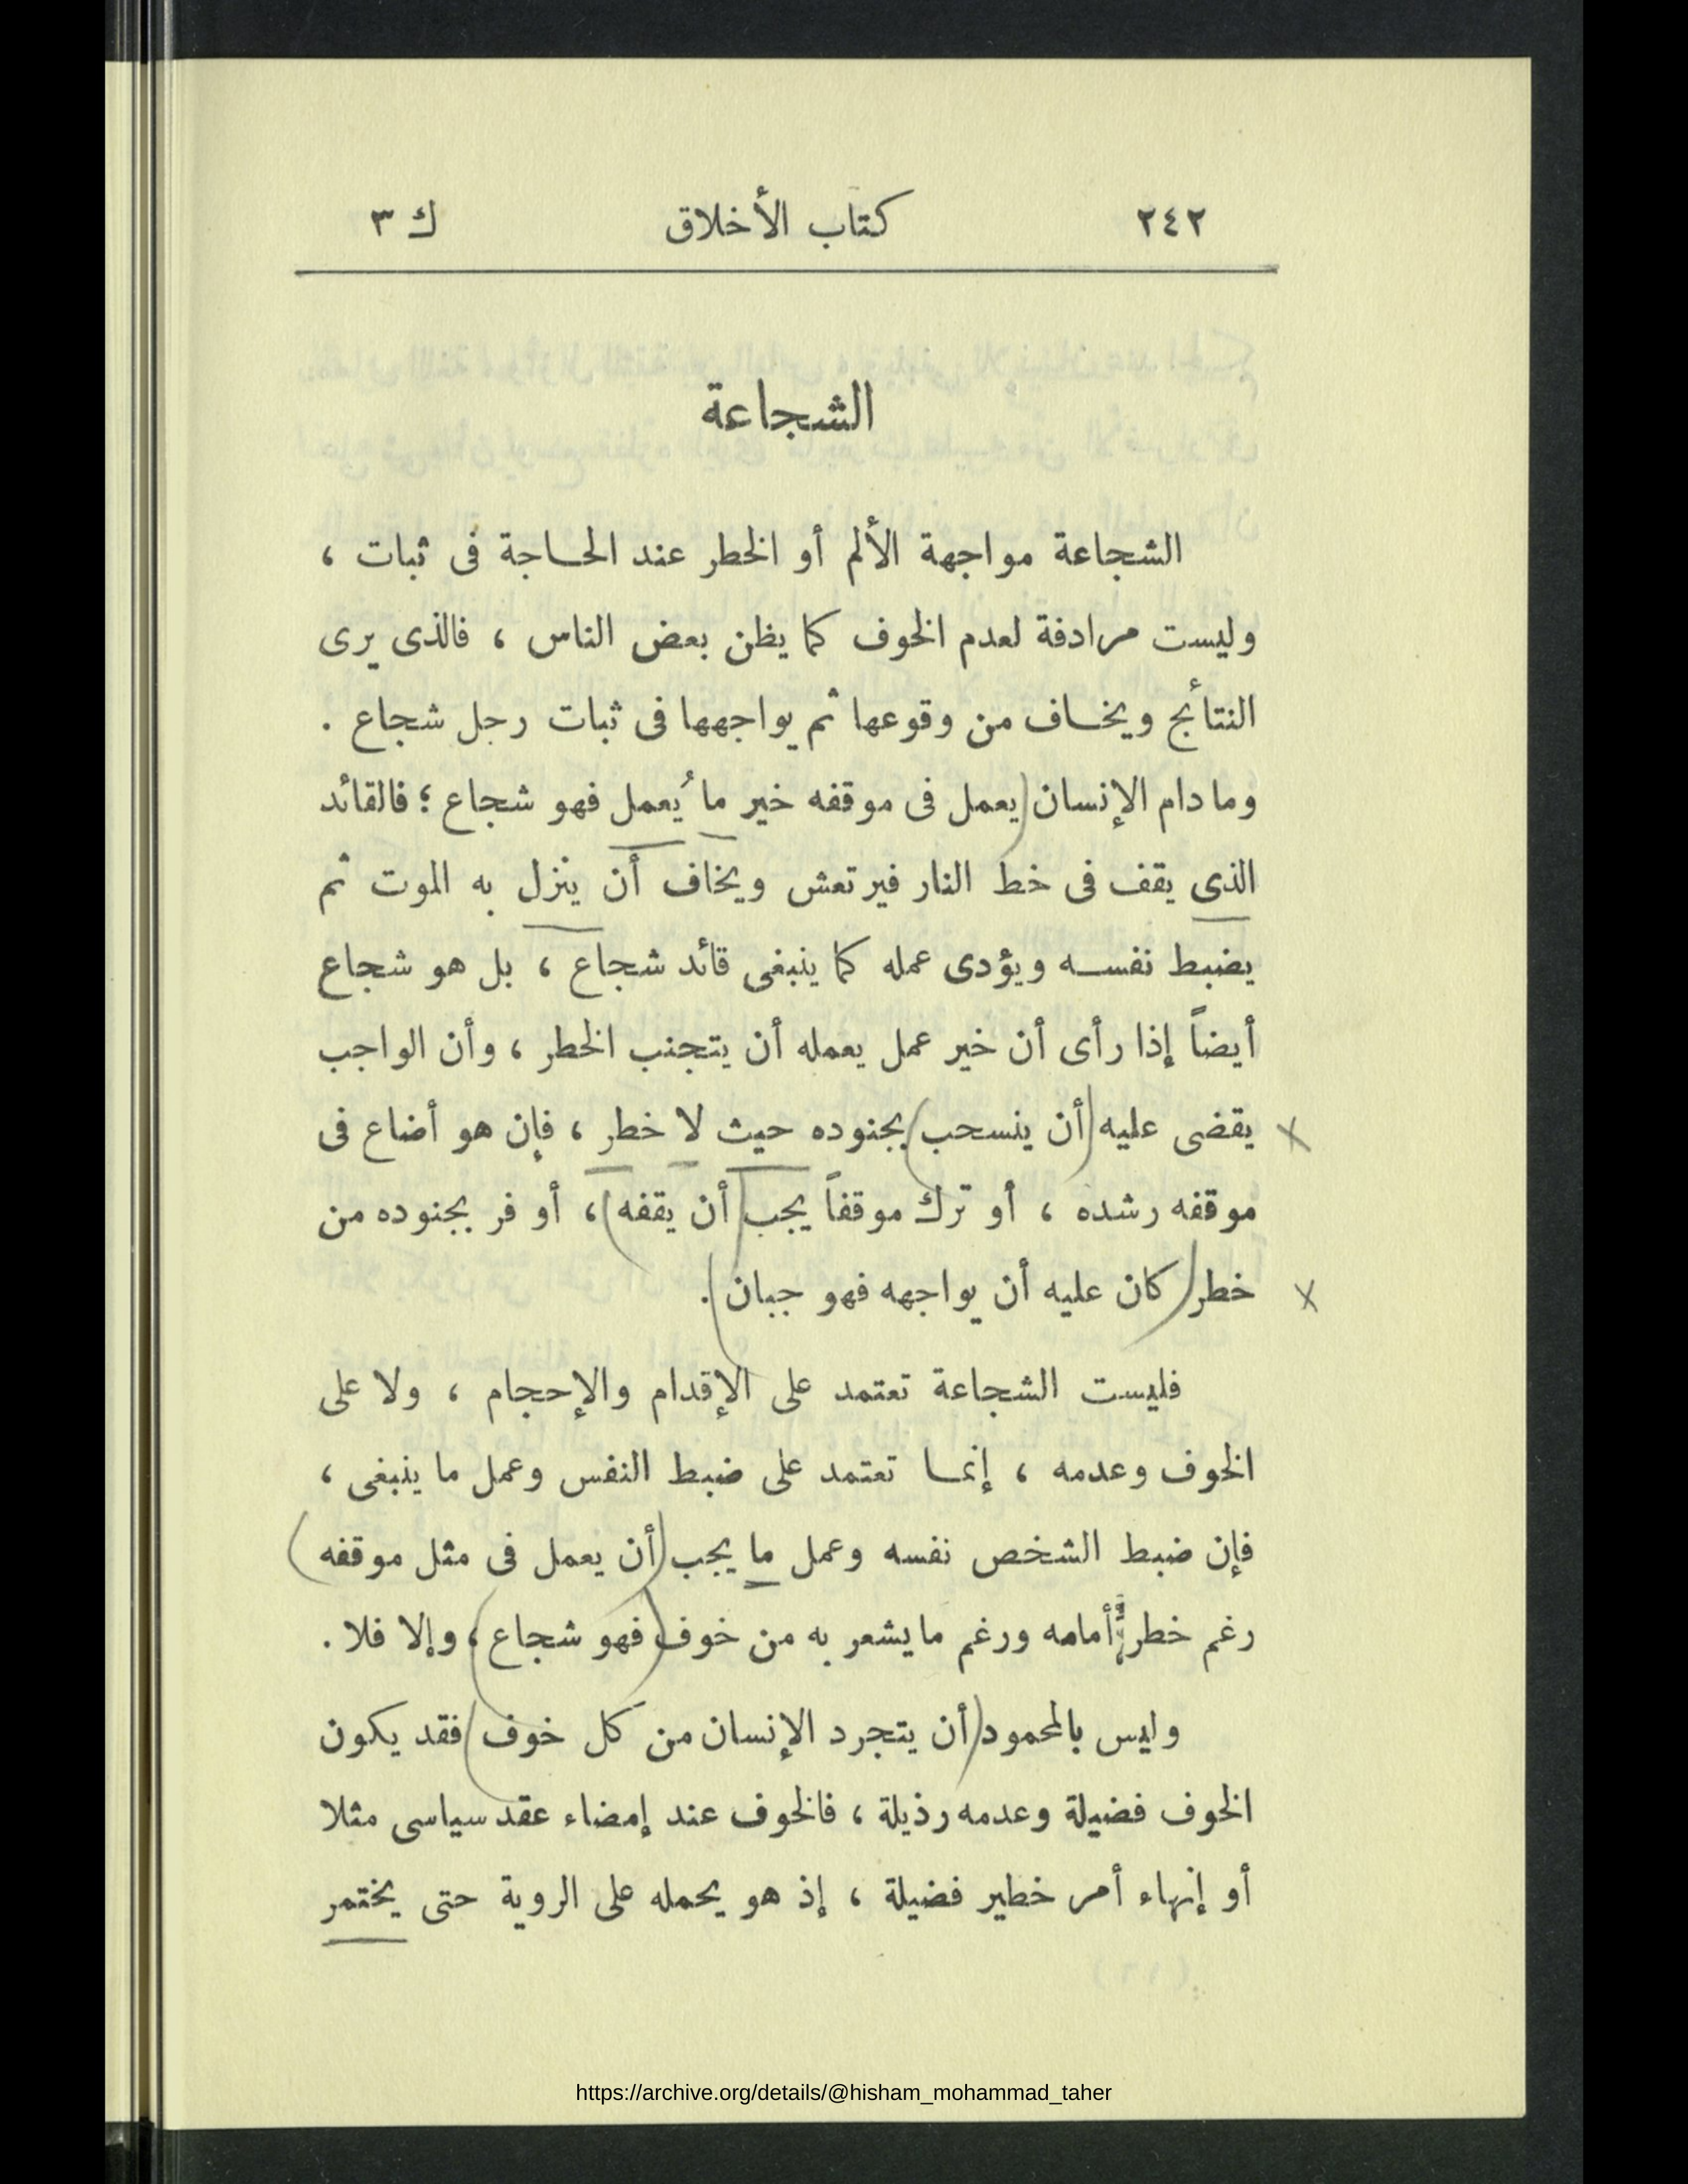 ٢٤٢ كتاب الأخلاق ك ٣
الشجاعة
الشجاعة مواجهة الألم أو الخطر عند الحاجة فى ثبات ،
وليست مرادفة لعدم الخوف كما يظن بعض الناس ، فالذى يرى
النتائج ويخاف من وقوعها ثم يواجهها فى ثبات رجل شجاع .
وما دام الإنسان (يعمل فى موقفه خير ما يُعمل فهو شجاع ؛ فالقائد
الذى يقف فى خط النار فيرتعش ويخاف أن ينزل به الموت ثم
يضبط نفسه ويؤدى عمله كما ينبغى قائد شجاع ، بل هو شجاع
أيضاً إذا رأى أن خير عمل يعمله أن يتجنب الخطر ، وأن الواجب
يقضى عليه (أن ينسحب) بجنوده حيث لا خطر ، فإن هو أضاع فى
موقفه رشده ، أو ترك موقفاً يجب (أن يقفه) ، أو فر بجنوده من
خطر (كان عليه أن يواجهه فهو جبان) .
فليست الشجاعة تعتمد على الإقدام والإحجام ، ولا على
الخوف وعدمه ، إنما تعتمد على ضبط النفس وعمل ما ينبغى ،
فإن ضبط الشخص نفسه وعمل ما يجب (أن يعمل فى مثل موقفه)
رغم خطر أمامه ورغم ما يشعر به من خوف (فهو شجاع) ، وإلا فلا .
وليس بالمحمود (أن يتجرد الإنسان من كل خوف) فقد يكون
الخوف فضيلة وعدمه رذيلة ، فالخوف عند إمضاء عقد سياسى مثلا
أو إنهاء أمر خطير فضيلة ، إذ هو يحمله على الروية حتى يختمر
https://archive.org/details/@hisham_mohammad_taher